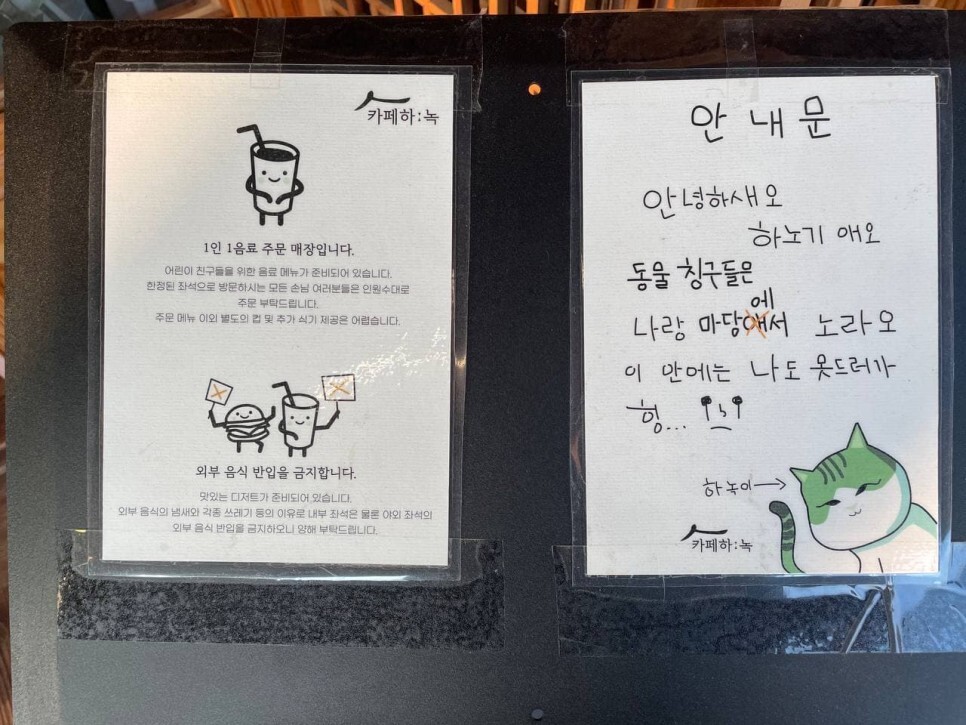 카페하:녹
1인 1음료 주문 매장입니다.
어린이 친구들을 위한 음료 메뉴가 준비되어 있습니다.
한정된 좌석으로 방문하시는 모든 손님 여러분들은 인원수대로
주문 부탁드립니다.
주문 메뉴 이외 별도의 컵 및 추가 식기 제공은 어렵습니다.
외부 음식 반입을 금지합니다.
맛있는 디저트가 준비되어 있습니다.
외부 음식의 냄새와 각종 쓰레기 등의 이유로 내부 좌석은 물론 야외 좌석의
외부 음식 반입을 금지하오니 양해 부탁드립니다.
안내문
안녕하새오
하노기 애오
동물 칭구들은
나랑 마당에서 노라오
이 안에는 나도 못드러가
힝...
하녹이→
카페하:녹